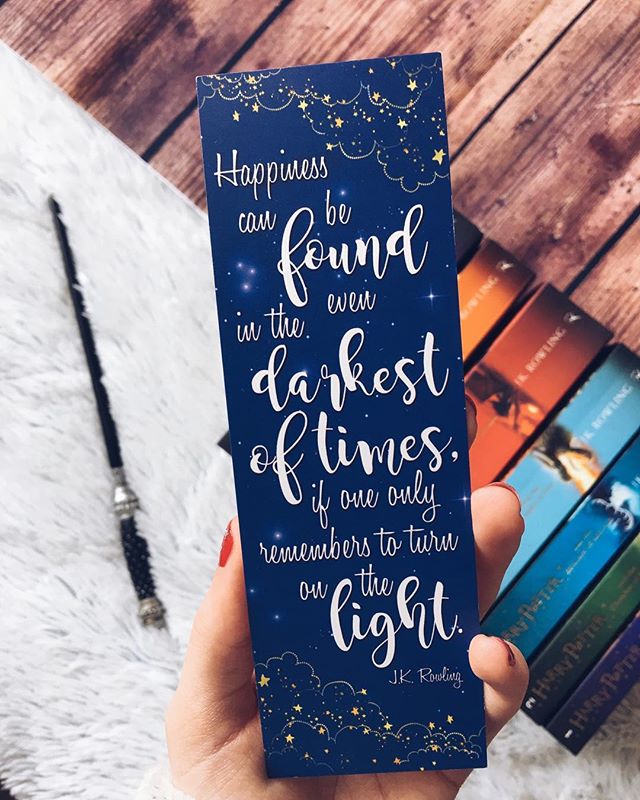 Happiness
can be
found
in the even
darkest
of times,
if one only
remembers to turn
on the
light.
J.K. Rowling
J.K. ROWLING
J.K. ROWLING
HARRY POTTER
HARRY POTTER
HARRY POTTER